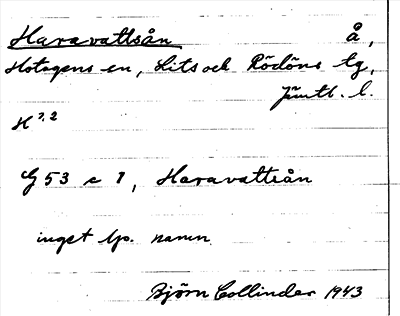 Haravattsån å,
Hotagens sn, Lits och Rödöns tg,
Jämtl. l.
H 7,2
G 53 c 1, Haravattsån
inget lp. namn
Björn Collinder 1943